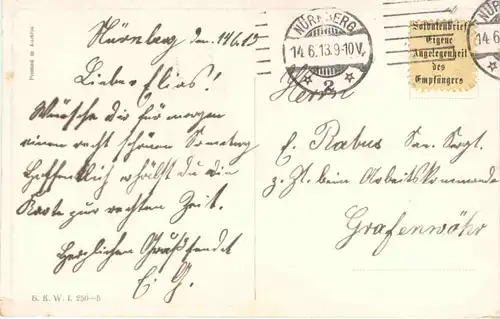 Nürnberg den 14.6.13
Lieber Elias!
Wünsche dir für morgen
einen recht schönen Sonntag
Hoffentlich erhälst du die
Karte zur rechten Zeit.
Herzlichen Gruß sendet
E. G.
Printed in Austria
B. K. W. I. 250—5
NÜRNBERG
14.6.13.9-10V.
2
Soldatenbrief
Eigene
Angelegenheit
des
Empfängers
Herrn
E. Rabus San. Sergt.
z. Zt. beim Arbeitskommando
Grafenwöhr